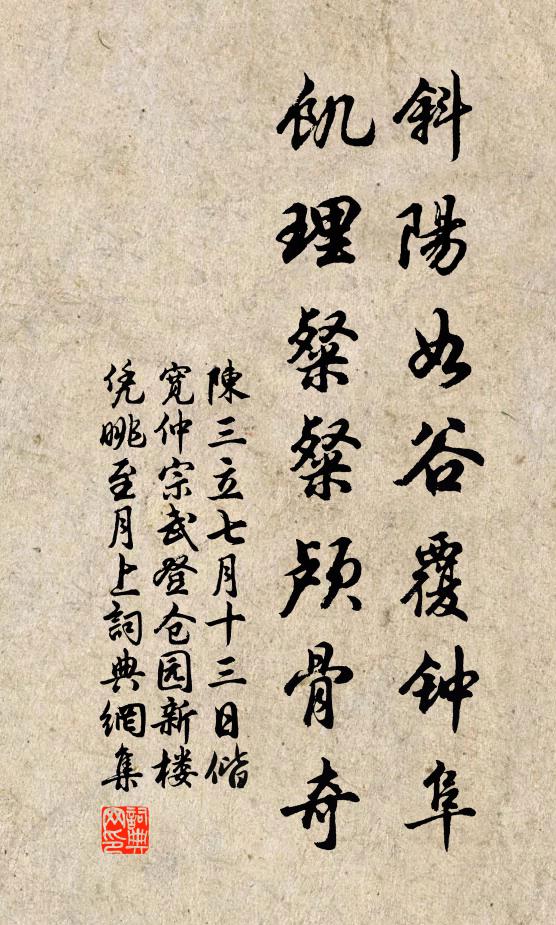 斜陽如谷覆钟阜
飢理粲粲颅骨奇
陳三立七月十三日偕
寛仲宗武登仓园新楼
凭眺至月上詞典網集
詞典网印